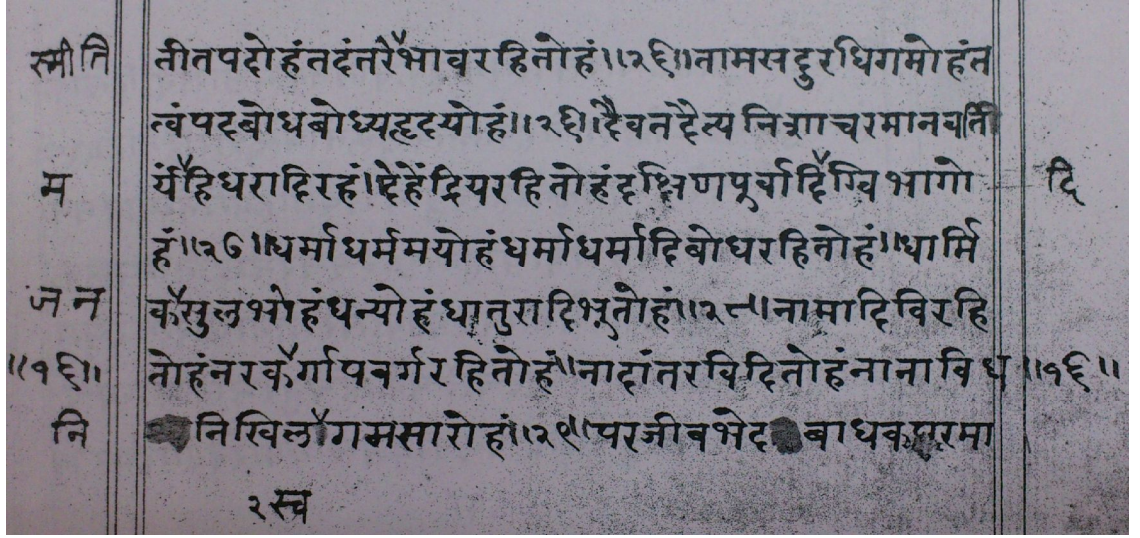 स्मीति नीतपदोहंतदंतरेभावरहितोहं॥२६॥नामसद्गुरधिगमोहंत
त्वंपदबोधबोध्यहृदयोहं॥२६॥दैवतदैत्यनिशाचरमानवति
म र्यंहिधरादिरहं॥देहेंद्रियरहितोहंदक्षिणपुर्वादिग्विभागो दि
हं॥२७॥धर्माधर्ममयोहंधर्माधर्मादिबोधरहितोहं॥धार्मि
ज न कसुलभोहंधन्योहंधातुरादिभुतोहं॥२८॥नामादिविरहि
॥१६॥ तोहंनरकर्गापवर्गरहितोहं॥नादांतरविदितोहंनानाविध ॥१६॥
नि निखिलागमसारोहं॥२९॥परजीवभेदबाधकपरमा
२ स्व